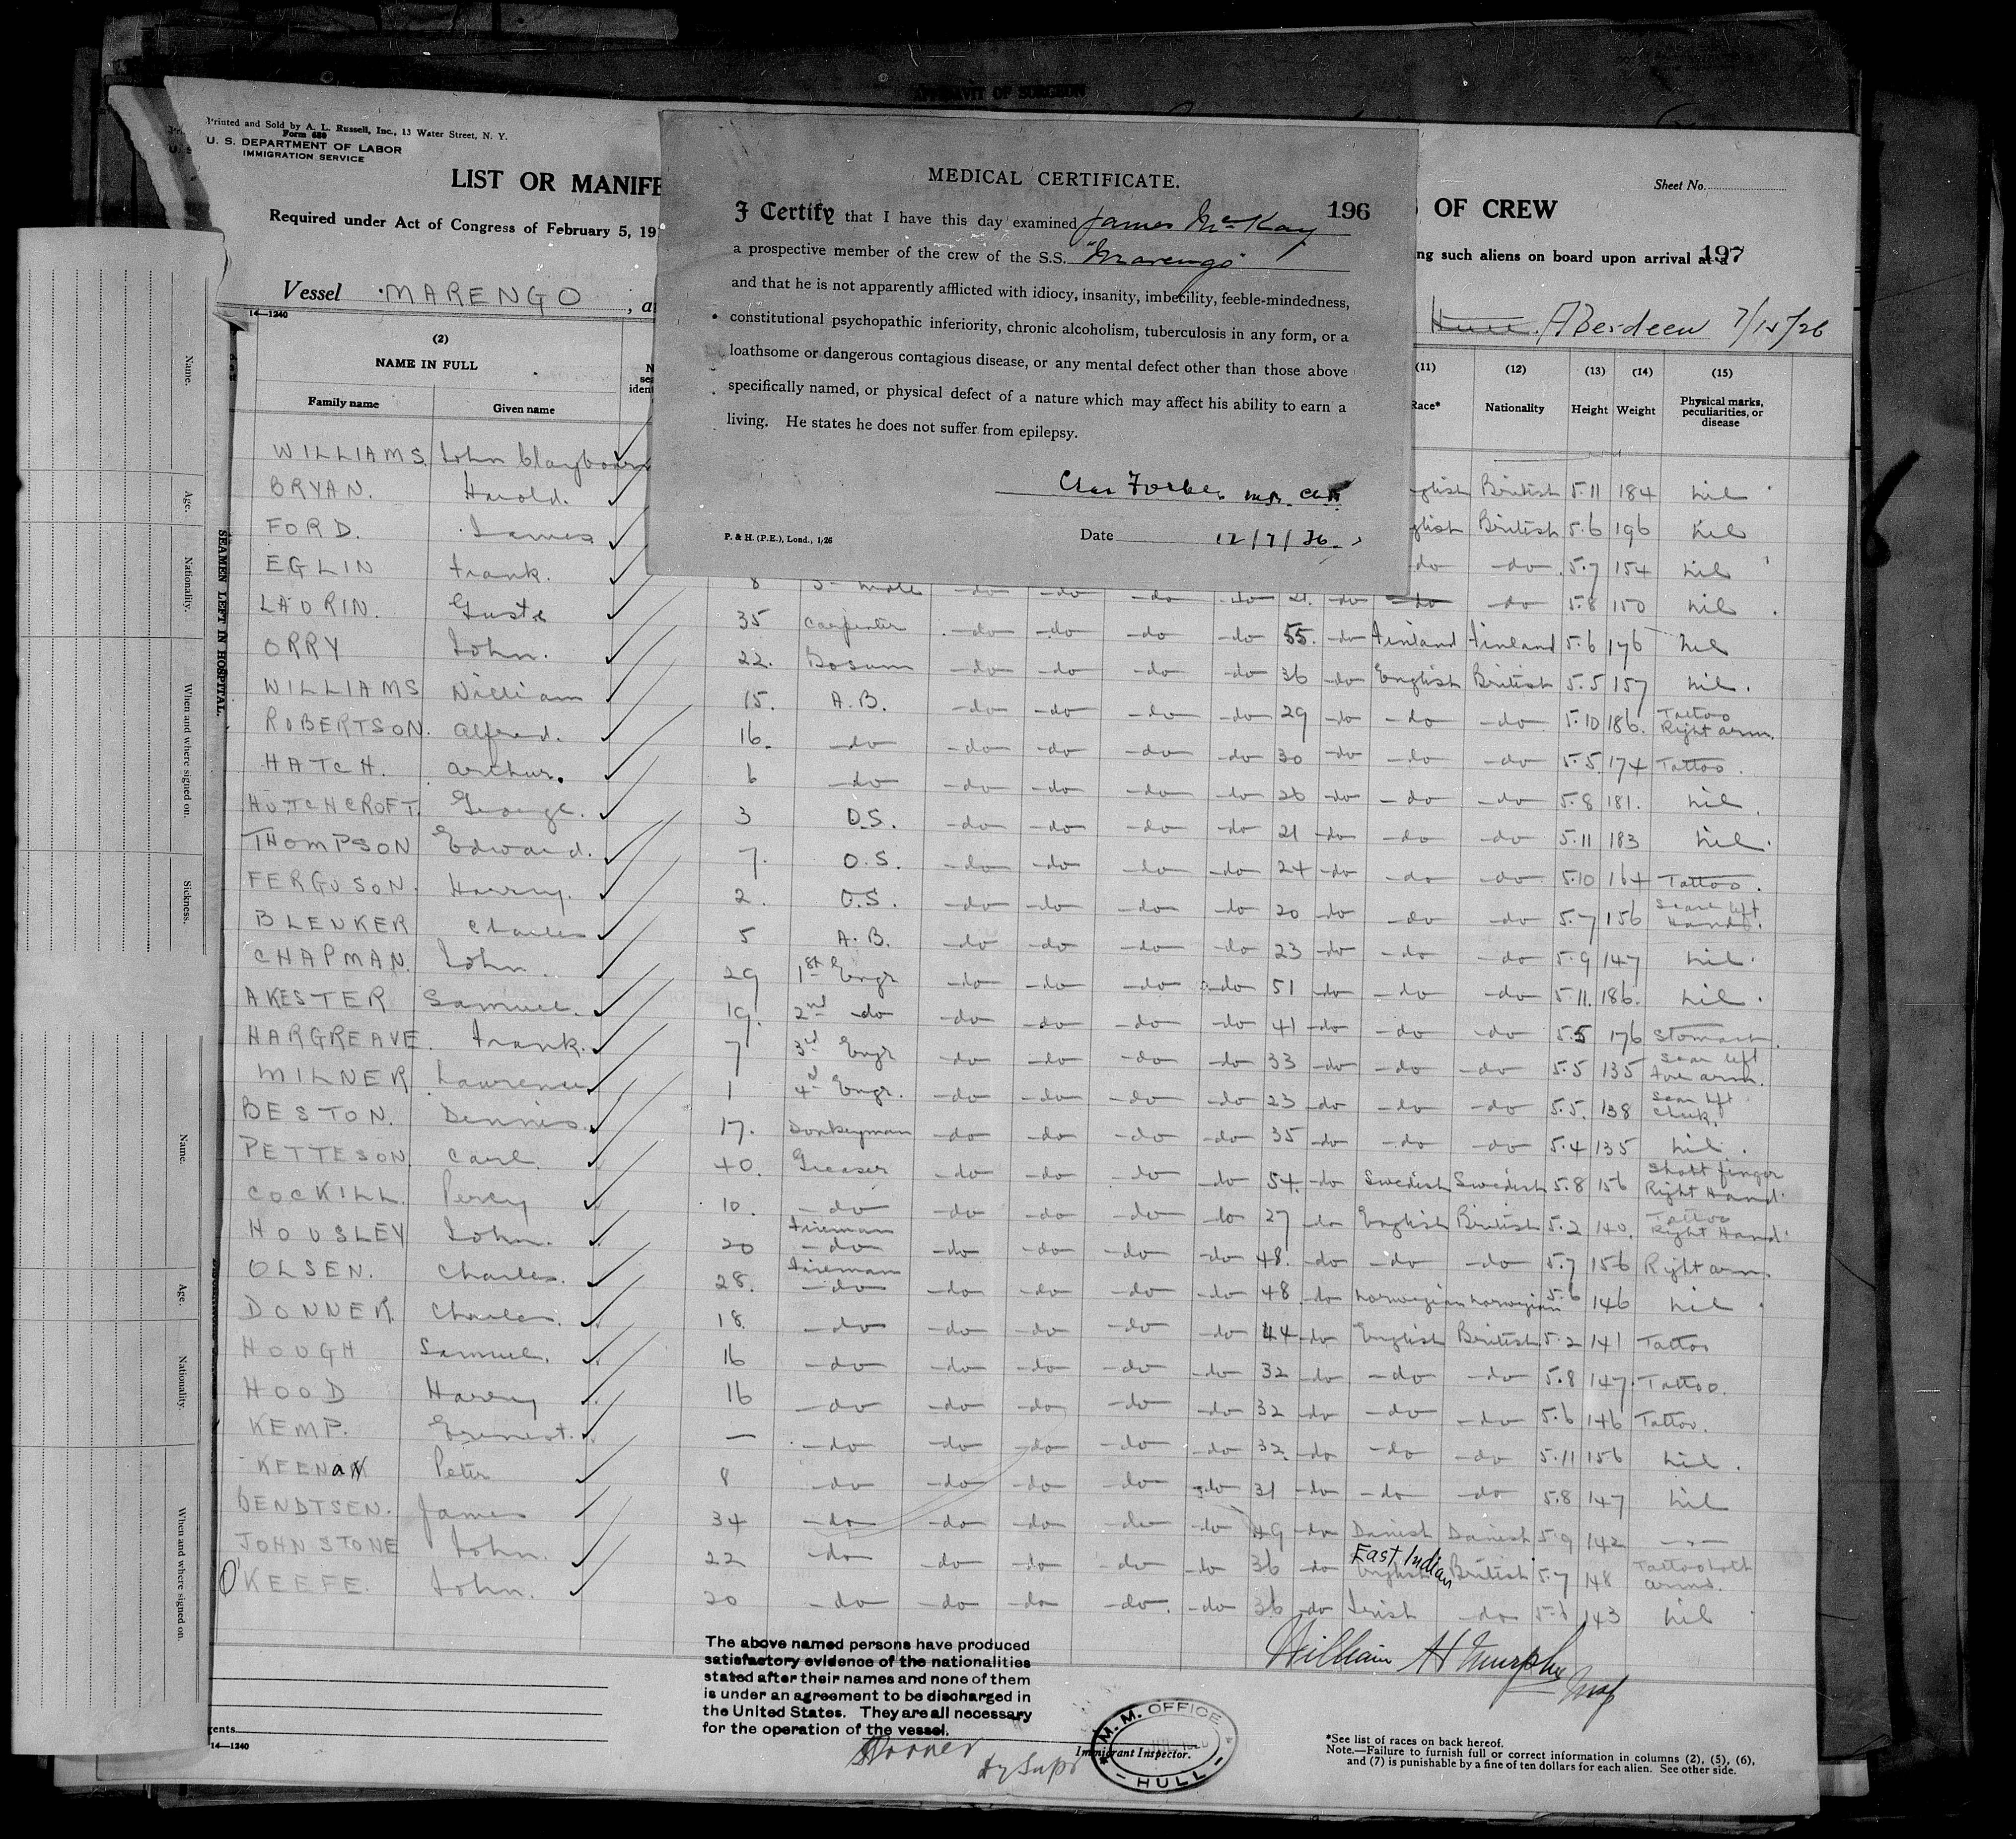 AFFIDAVIT OF SURGEON
Printed and Sold by A. L. Russell, Inc., 13 Water Street, N. Y.
Form 680
U. S. DEPARTMENT OF LABOR
IMMIGRATION SERVICE
LIST OR MANIFE
OF CREW
Sheet No.
Required under Act of Congress of February 5, 19
ng such aliens on board upon arrival at a
197
Vessel MARENGO, a
Aberdeen 7/15/26
MEDICAL CERTIFICATE.
196
I Certify that I have this day examined James McKay
a prospective member of the crew of the S.S. "Marengo"
and that he is not apparently afflicted with idiocy, insanity, imbecility, feeble-mindedness,
constitutional psychopathic inferiority, chronic alcoholism, tuberculosis in any form, or a
loathsome or dangerous contagious disease, or any mental defect other than those above
specifically named, or physical defect of a nature which may affect his ability to earn a
living. He states he does not suffer from epilepsy.
Forbes
P. & H. (P.E.), Lond., 1/26
Date 12/7/26.
14—1240
(2)
NAME IN FULL
Family name Given name
(11) (12) (13) (14) (15)
Race* Nationality Height Weight Physical marks, peculiarities, or disease
WILLIAMS. John
BRYAN. Harold. glish British 5.11 184 nil
FORD. James glish British 5.6 196 nil
EGLIN Frank. do do 5.7 154 nil
LAURIN. 8 do do do do 21. do do do 5.8 150 nil
35 Carpenter do do do do 55. do Finland Finland 5.6 176 nil
ORRY John. 22. Bosun do do do do 36 do English British 5.5 157 nil.
WILLIAMS William 15. A.B. do do do do 29 do do do 5.10 186. Tattoo Right arm.
ROBERTSON. Alfred. 16. do do do do do 30 do do do 5.5. 174 Tattoo.
HATCH. Arthur. 6 do do do do do 26 do do do 5.8 181. nil
HUTCHCROFT. George. 3 O.S. do do do do 21 do do do 5.11 183 nil.
THOMPSON Edward. 7. O.S. do do do do 24 do do do 5.10 164 Tattoo.
FERGUSON. Harry. 2. O.S. do do do do 20 do do do 5.7 156 Scar left Hand.
BLENKER Charles 5 A.B. do do do do 23 do do do 5.9 147 nil.
CHAPMAN. John 29 1st Engr do do do do 51 do do do 5.11. 186. nil.
AKESTER Samuel. 19. 2nd do do do do do 41 do do do 5.5 176 Stomach.
HARGREAVE. Frank. 7 3rd Engr do do do do 33 do do do 5.5 135 Scar left fore arm.
MILNER Lawrence 1 4th Engr. do do do do 23 do do do 5.5. 138 Scar left Cheek.
BESTON. Dennis. 17. Donkeyman do do do do 35 do do do 5.4 135 nil.
PETTESON Carl. 40. Greaser do do do do 54. do Swedish Swedish 5.8 156 Short finger Right Hand.
COCKILL. Percy 10. do do do do do 27 do English British 5.2 140. Tattoo Right Hand.
HOUSLEY John. 20 Fireman do do do do do 48. do do do 5.7 156 Right arm.
OLSEN. Charles. 28. Fireman do do do do do 48 do Norwegian Norwegian 5.6 146 nil
DONNER. Charles. 18. do do do do do 44 do English British 5.2 141 Tattoo
HOUGH Samuel. 16 do do do do do 32 do do do 5.8 147. Tattoo.
HOOD Harry 16 do do do do do 32 do do do 5.6 146 Tattoo.
KEMP. Ernest. — do do do do do 32 do do do 5.11 156 nil.
Peter 8 do do do do do 31 do do do 5.8 147 nil
BENDTSEN. James 34 do do do do do 49 do Danish Danish 5.9 142
JOHNSTONE John. 22 do do do do do 36 do East Indian English British 5.7 148 Tattoo both arms.
O'KEEFE. John. 20 do do do do do 36 do Irish do 5.6 143 nil
William H Murphy
The above named persons have produced
satisfactory evidence of the nationalities
stated after their names and none of them
is under an agreement to be discharged in
the United States. They are all necessary
for the operation of the vessel.
Immigrant Inspector.
M.M. OFFICE
HULL
gents
14—1240
*See list of races on back hereof.
Note.—Failure to furnish full or correct information in columns (2), (5), (6),
and (7) is punishable by a fine of ten dollars for each alien. See other side.
SEAMEN LEFT IN HOSPITAL.
Name.
Age.
Nationality.
When and where signed on.
Sickness.
Name.
Age.
Nationality.
When and where signed on.